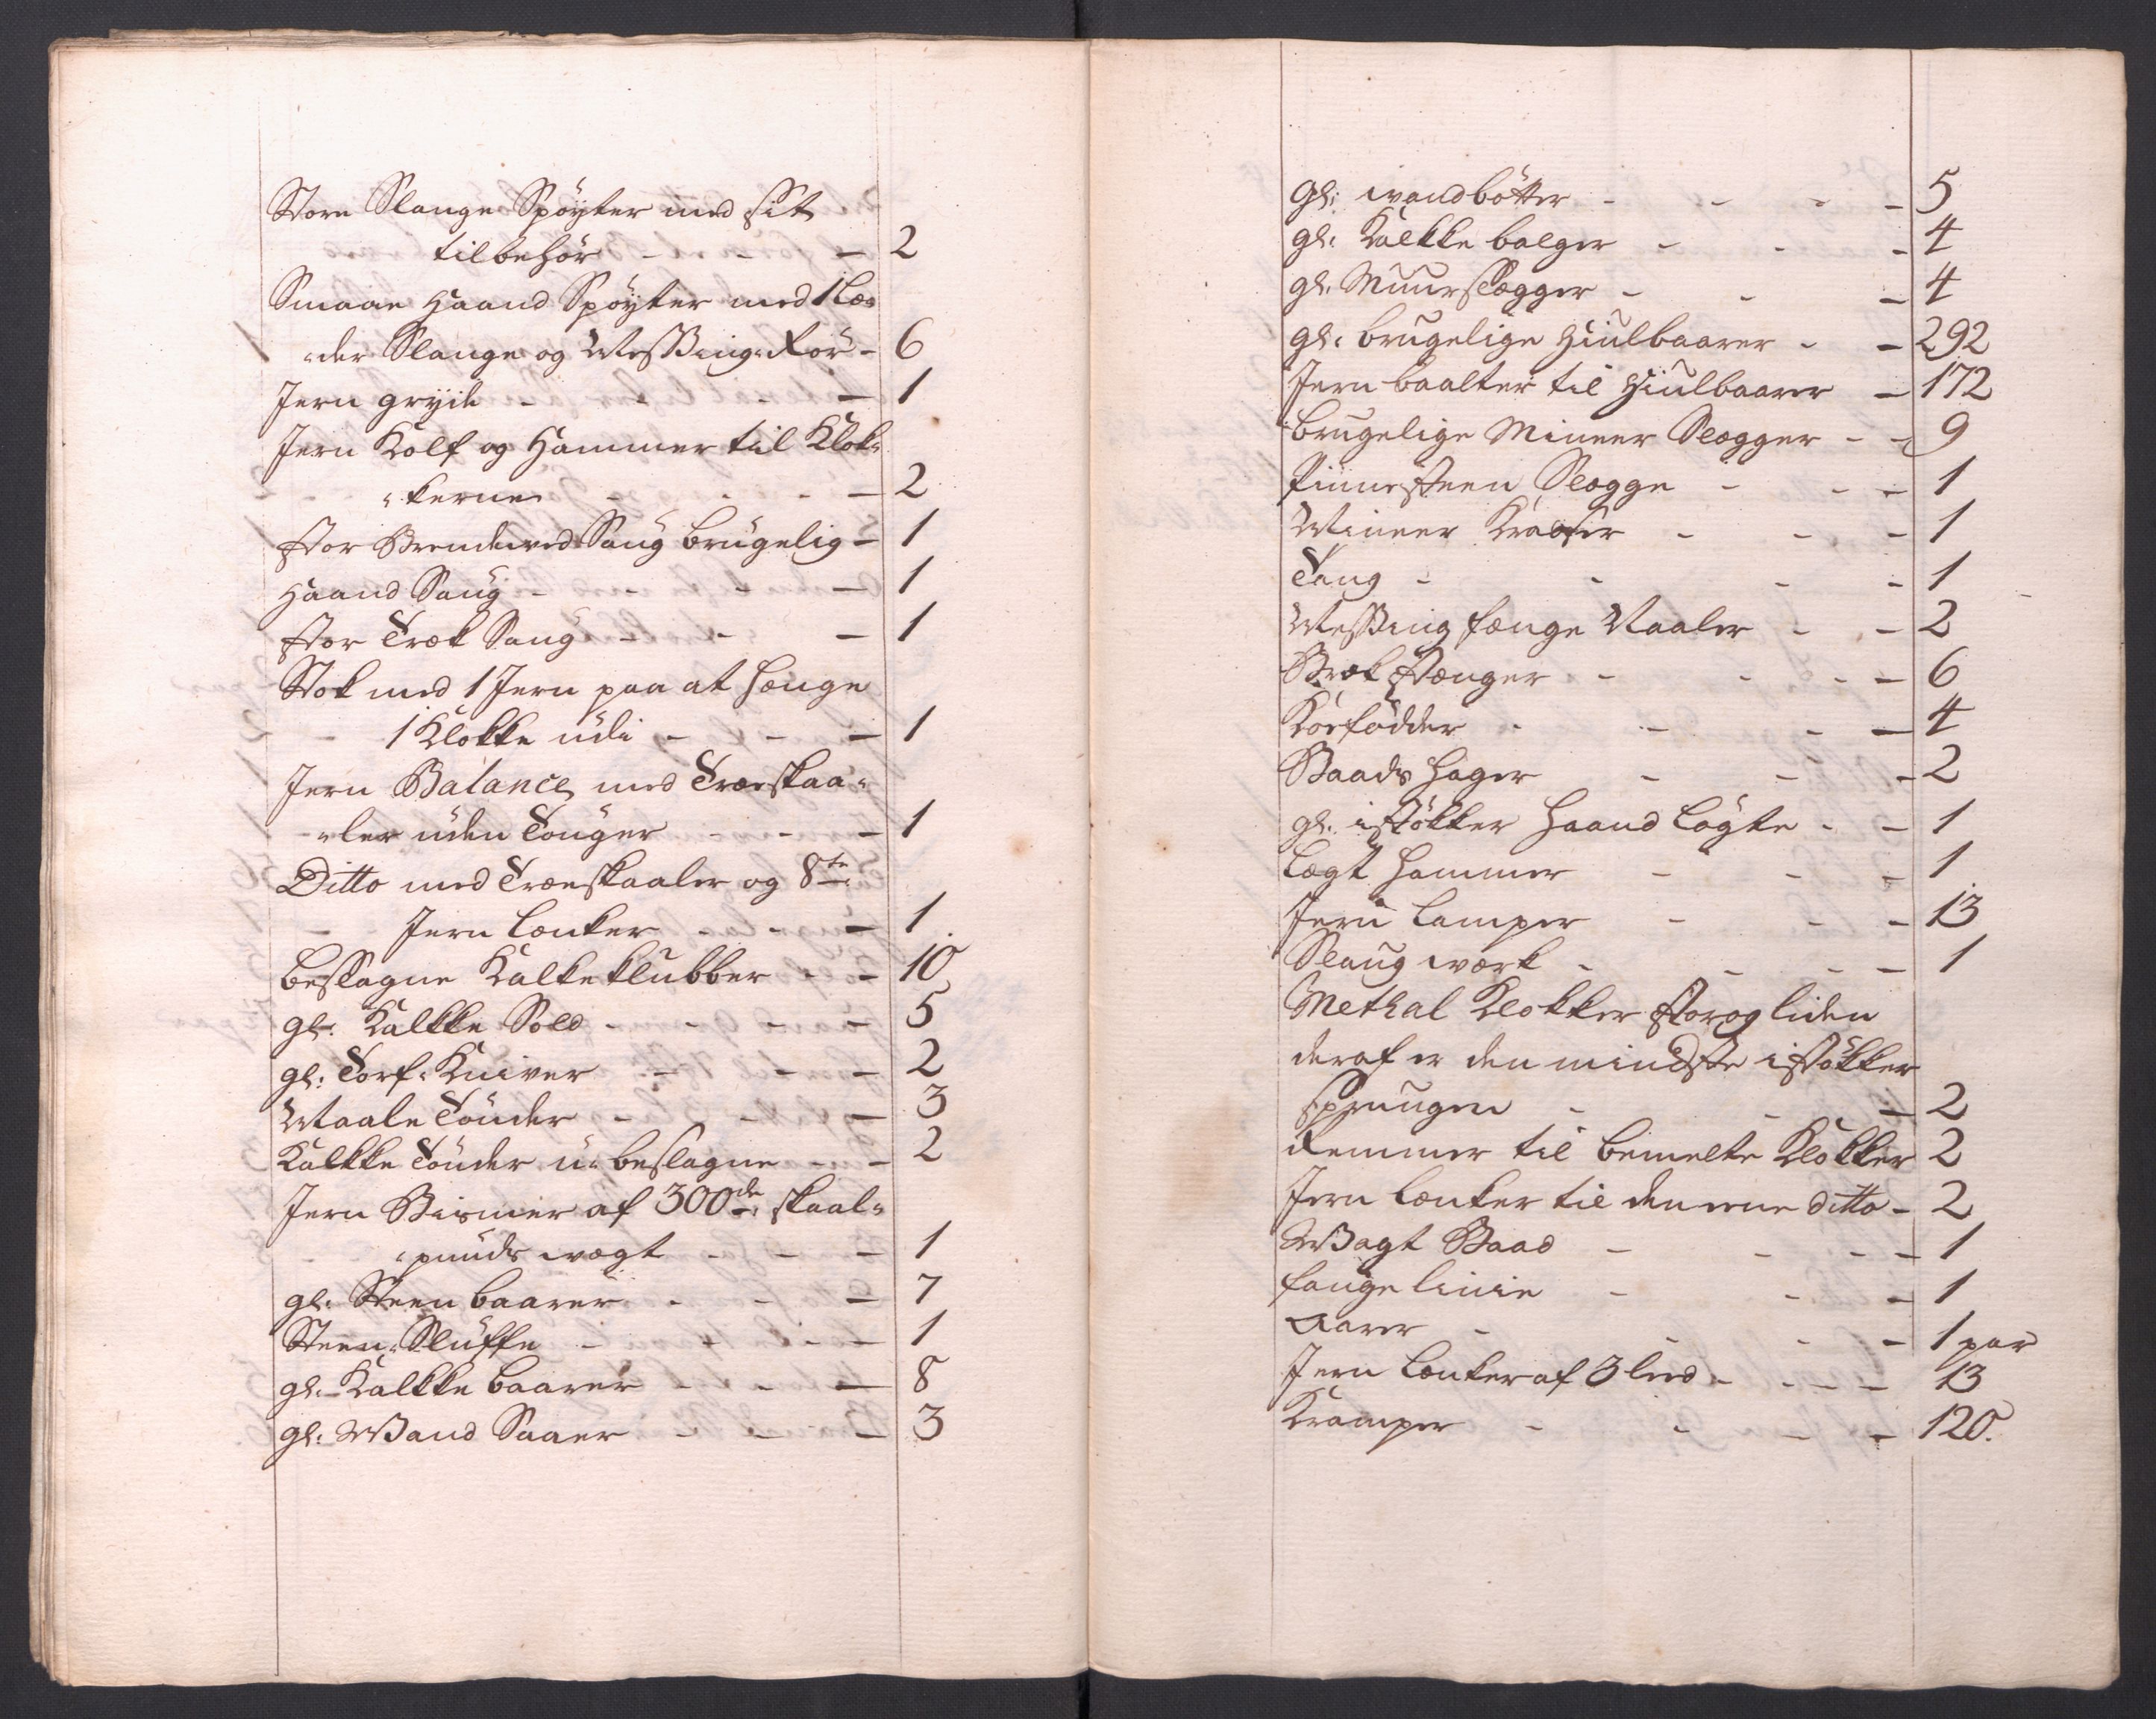 Store Slange Spöyter med sit
tilbehör - - - 2
Smaae Haand Spöyter med 1 Læ-
-der Slange og Messing-Rör - 6
Jern gryde - - - 1
Jern Kolf og Hammer til Klok-
-kerne - - - 2
stor Brendeved Saug brugelig - 1
Haand Saug - - - 1
stor Træk Saug - - - 1
Stok med 1 Jern paa at hænge
1 Klokke udi - - - 1
Jern Balance med Træskaa-
-ler uden Touger - - - 1
Ditto med Træeskaaler og 8te
Jern Lænker - - - 1
beslagne Kalkeklubber - - 10
gl: Kalkke Sold - - - - 5
gl: Torf-Kniver - - - 2
Maale Tönder - - - 3
Kalkke Tönder u-beslagne - - 2
Jern Bismer af 300de skaal-
-punds vægt - - - 1
gl: Steen baarer - - - 7
Steen-Sluffe - - - 1
gl: Kalkke baarer - - - 8
gl: Wand Saaer - - - 3
gl: vandbötter - - - - 5
gl: Kalkke balger - - - 4
gl: Muurslægger - - - 4
gl: brugelige Hiulbaarer - - 292
Jern baalter til Hiulbaarer - 172
brugelige Mineer Slægger - - 9
Pinnesteen Slægge - - - 1
Mineer Kradser - - - 1
Tang - - - - 1
Messing fænge Naaler - - 2
Bræk Stænger - - - - 6
Koefödder - - - - 4
Baads Hager - - - 2
gl: istökker Haand Lögte - - 1
Lægt Hammer - - - 1
Jern Lamper - - - 13
Slaug værk - - - - 1
Methal Klokker stor og liden
deraf er den mindste istökker
sprungen - - - 2
Remmer til bemelte Klokker 2
Jern Lænker til den eene ditto - 2
Wagt Baad - - - - 1
fange Linie - - - 1
Aarer - - - - 1 par
Jern Lænker af 3 leed - - - - 13
Kramper - - - - 120.